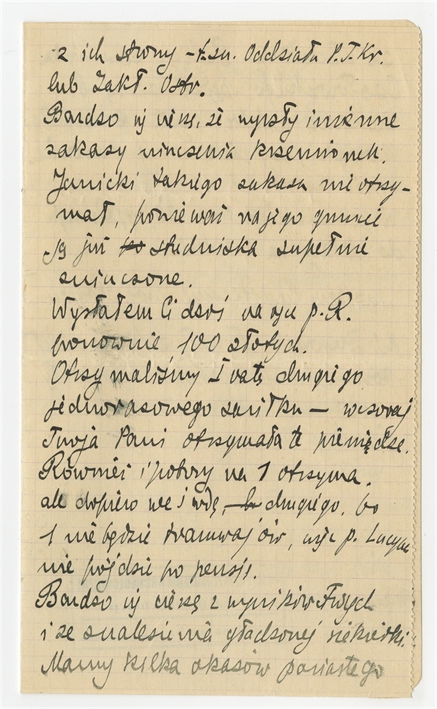 z ich strony – t.zn. Oddziału P.T.Kr.
lub Zakł. Ostr.
Bardzo się cieszę, że wyszły imienne
zakazy niszczenia krzemionek.
Janicki takiego zakazu nie otrzy-
mał, ponieważ na jego gruncie
są już studniska zupełnie
zniszczone.
Wysłałem Ci dziś na ręce p. R.
ponownie 100 złotych.
Otrzymaliśmy I ratę drugiego
jednorazowego zasiłku – wczoraj
Twoja Pani otrzymała te pieniądze.
Również i pobory na 1 otrzyma.
ale dopiero we środę drugiego, bo
1 nie będzie tramwajów, więc p. Lucyna
nie pójdzie po pensję.
Bardzo się cieszę z wyników Twych
i ze znalezienia gładzonej siekierki.
Mamy kilka okazów pasiastego